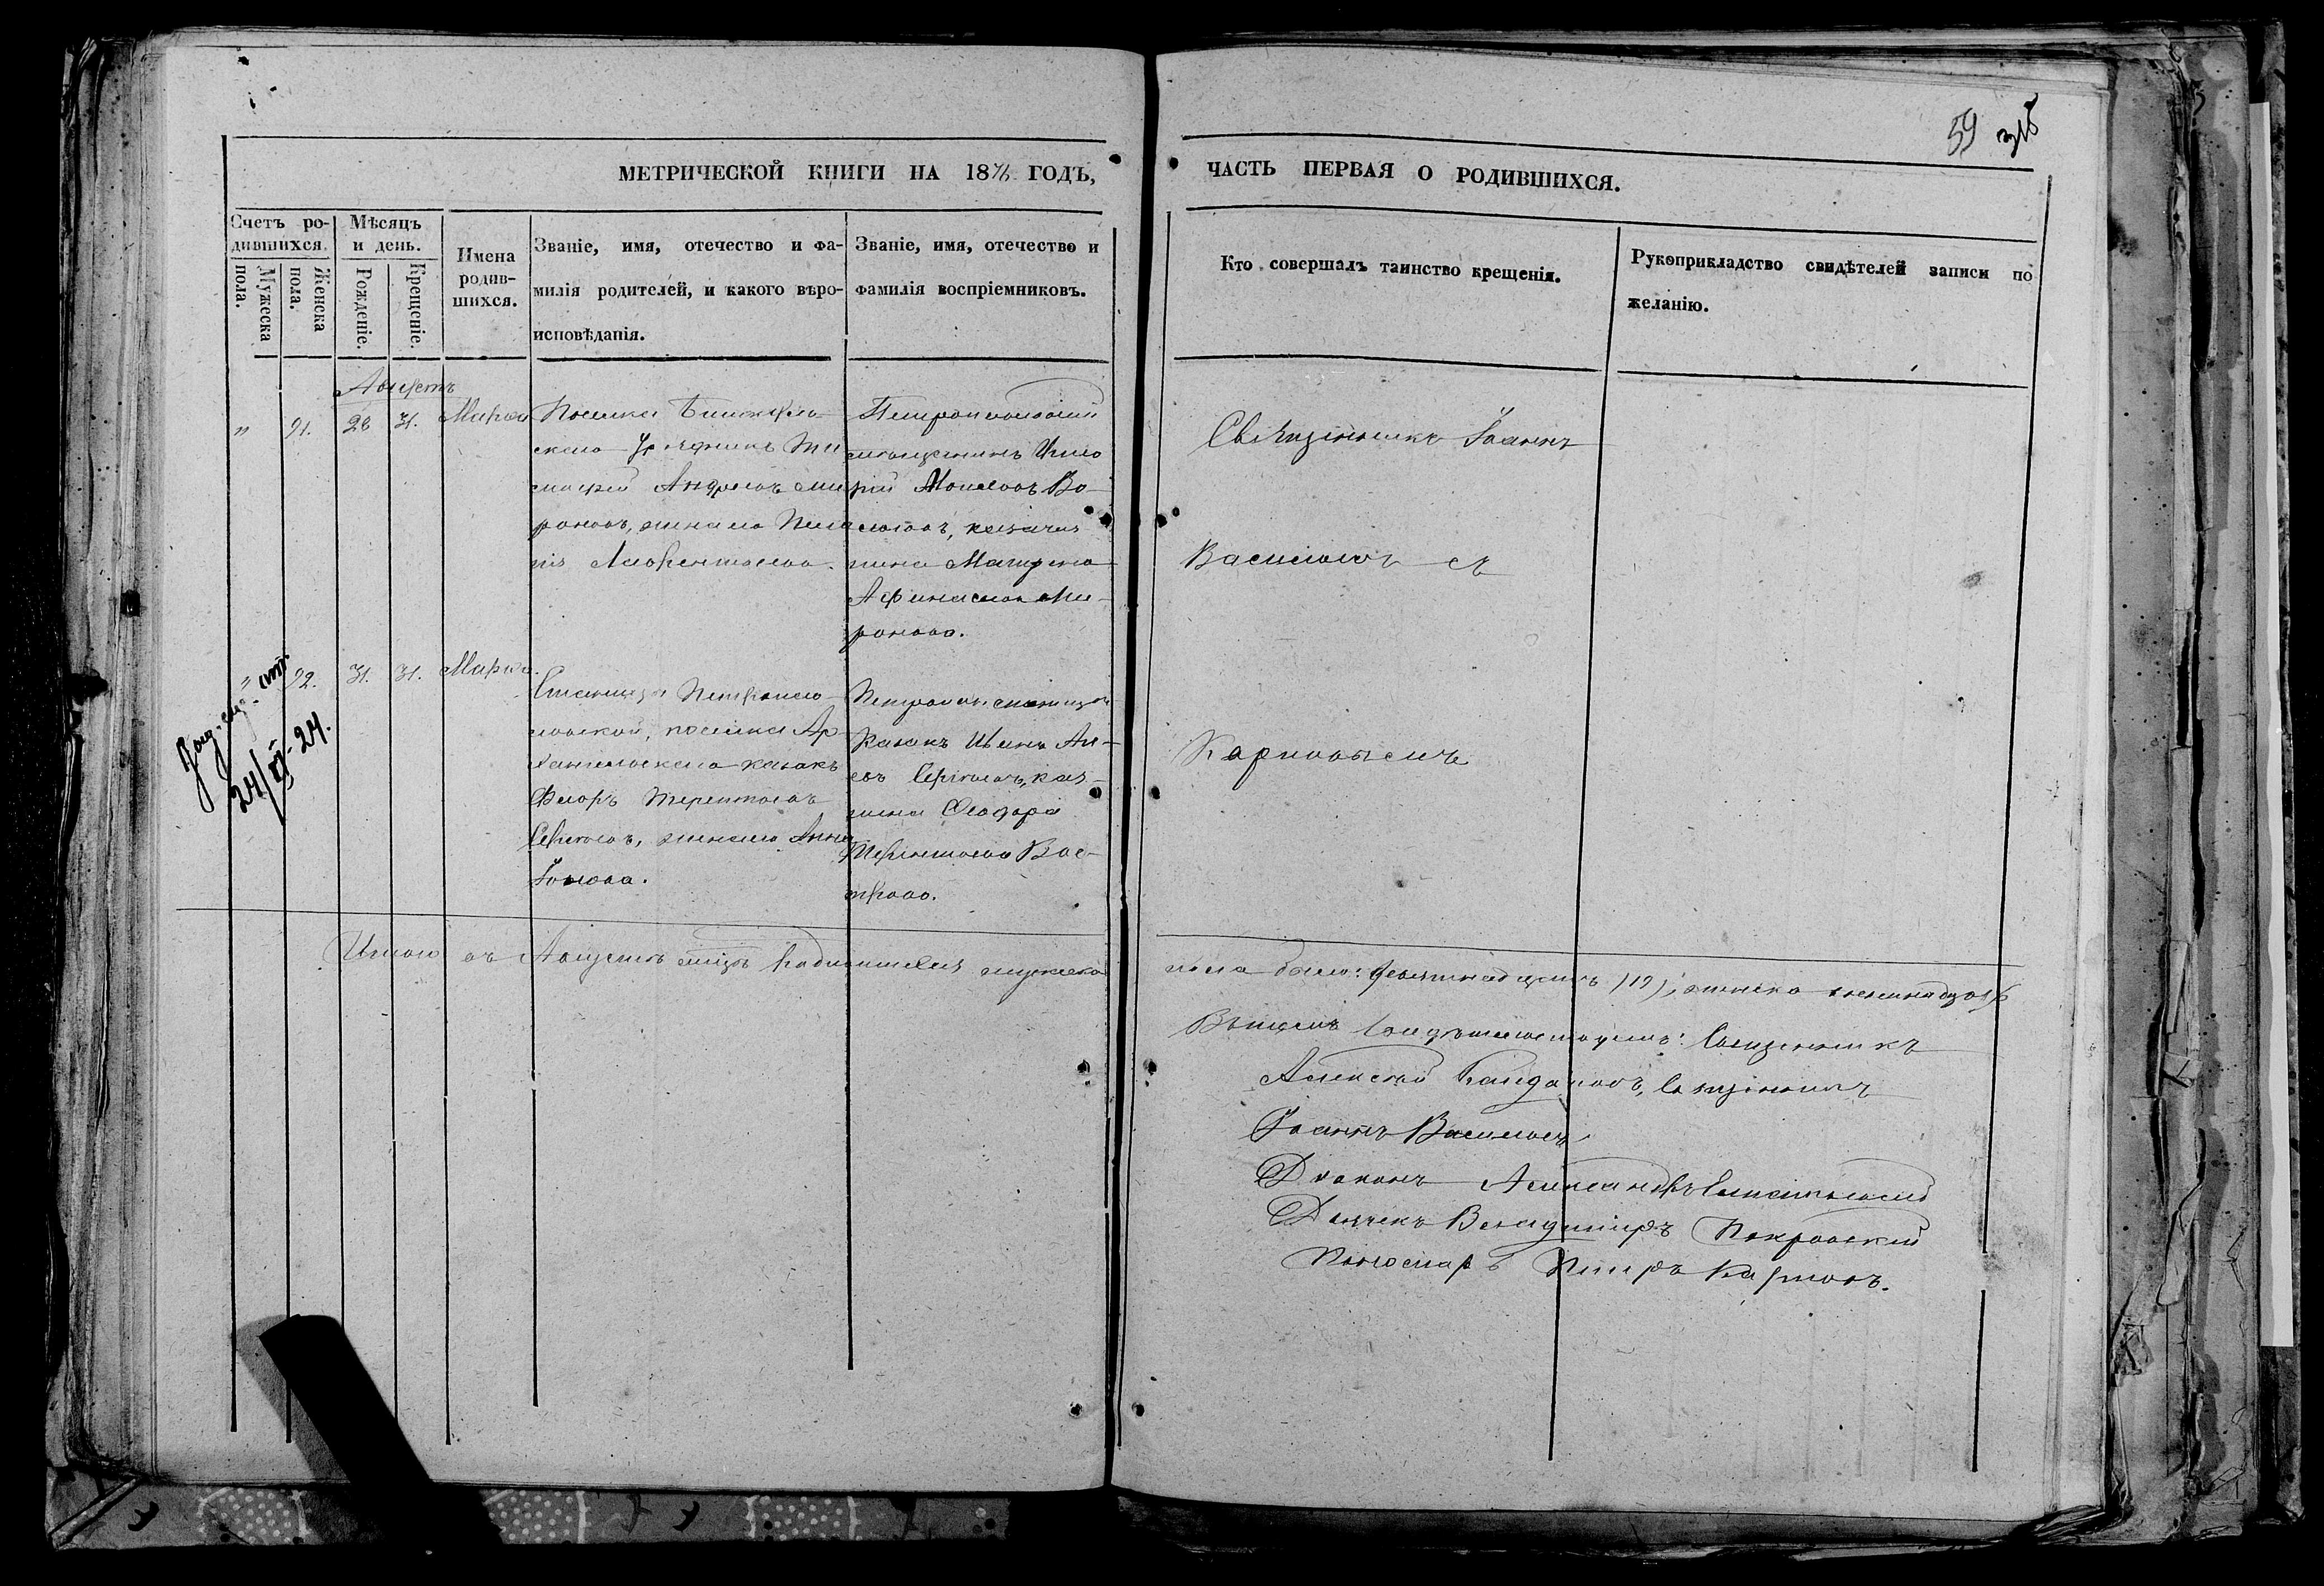 59
МЕТРИЧЕСКОЙ КНИГИ НА 1876 ГОДЪ,
ЧАСТЬ ПЕРВАЯ О РОДИВШИХСЯ.
Счетъ ро-
дившихся.
Мужеска
пола.
Женска
пола.
Мѣсяцъ
и день.
Рожденіе.
Крещеніе.
Имена
родив-
шихся.
Званіе, имя, отечество и фа-
милія родителей, и какого вѣро-
исповѣданія.
Званіе, имя, отечество и
фамилія воспріемниковъ.
Кто совершалъ таинство крещенія.
Рукоприкладство свидѣтелей записи по
желанію.
Августъ
" 91. 28 31. Марія
Поселка
скаго Урядникъ Ти
мофей Андреевъ Ми
роновъ, жена его Пела
гія Лаврентьева.
Петропавловскій
мѣщанинъ
Моисеевъ Во
казачья
жена Матрона
Афанасьева Ми-
ронова.
Священникъ Іоаннъ
Васильевъ съ
" 92. 31. 31. Марія.
Станицы Петропав
ловской, поселка Ар
хангельскаго казакъ
Федоръ Терентьевъ
Сергѣевъ, жена его Анна
Іонова.
Петропав. станицы
Казакъ Иванъ
Сергѣевъ, каз.
жена Феодора
Терентьева Вос-
трова.
Карповымъ
24/VI-24.
Итого въ Августѣ мѣсяцѣ родившихся мужеска
пола было: девятнадцать (19), женска
свидѣтельствуемъ: Священникъ
Алексѣй Священникъ
Іоаннъ Васильевъ
Діаконъ Александръ
Дьячекъ Владиміръ Покровскій
Пономарь Петръ Карповъ.